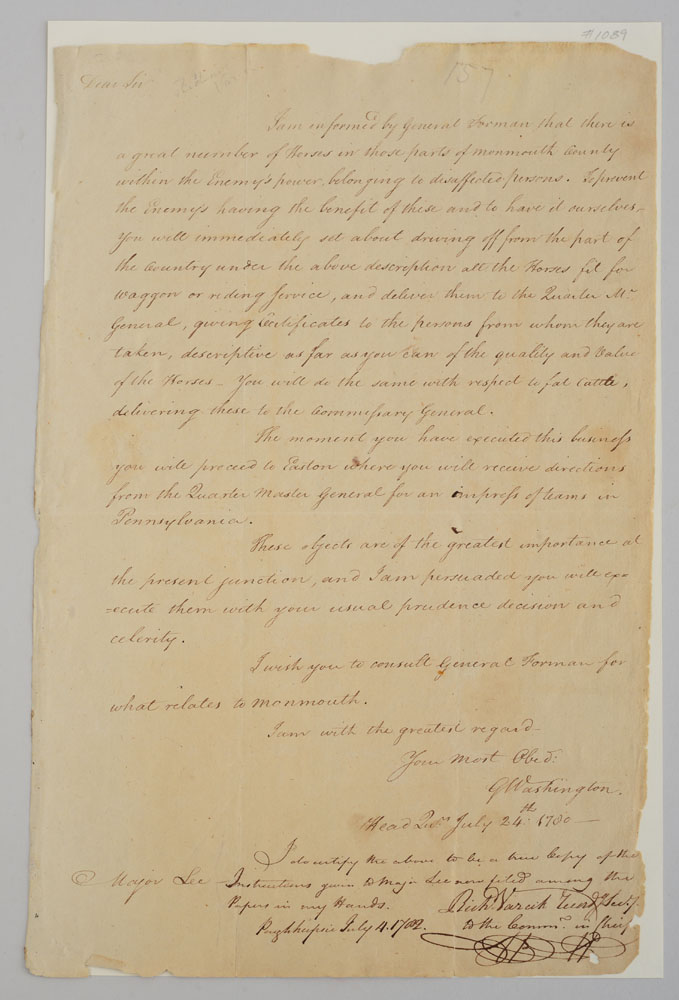 #1089
157
Dear Sir
I am informed by General Forman that there is
a great number of Horses in those parts of Monmouth County
within the Enemy's power, belonging to disaffected persons. To prevent
the Enemy's having the benefit of these and to have it ourselves,
You will immediately set about driving off from the part of
the Country under the above description all the Horses fit for
waggon or riding Service, and deliver them to the Quarter Mr.
General, giving Certificates to the persons from whom they are
taken, descriptive as far as you can of the quality and Value
of the Horses - You will do the same with respect to fat Cattle,
delivering these to the Commissary General.
The moment you have executed this business
you will proceed to Easton where you will receive directions
from the Quarter Master General for an impress of teams in
Pennsylvania.
These objects are of the greatest importance at
the present junction, and I am persuaded you will exe=
=ecute them with your usual prudence decision and
celerity.
I wish you to consult General Forman for
what relates to Monmouth.
I am with the greatest regard
Your Most Obed:
GWashington.
Head Qrs. July 24th. 1780 —
I do certify the above to be a true Copy of the
Major Lee - Instructions given to Major Lee now filed among the
Papers in my Hands. Rich. Varick Secy.
Poghkeepsie July 4. 1782. to the Comm. in Chief